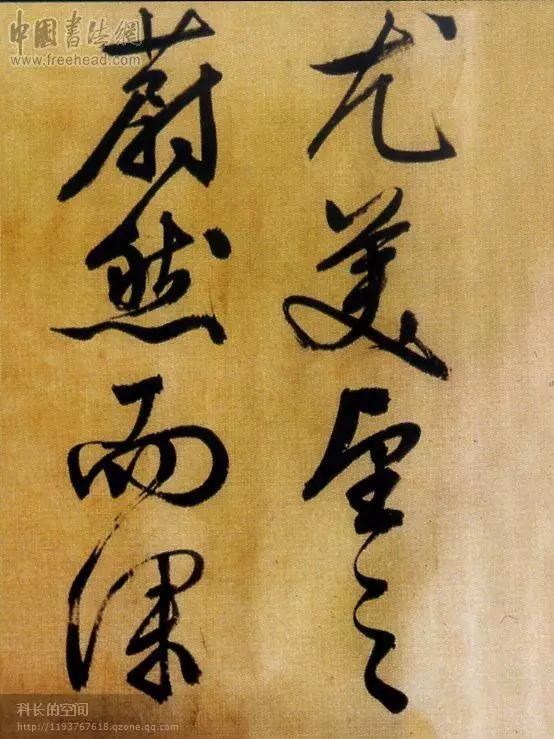 中国书法網
www.freehead.com
尤美望之
蔚然而深
科长的空间
http://1193767618.qzone.qq.com